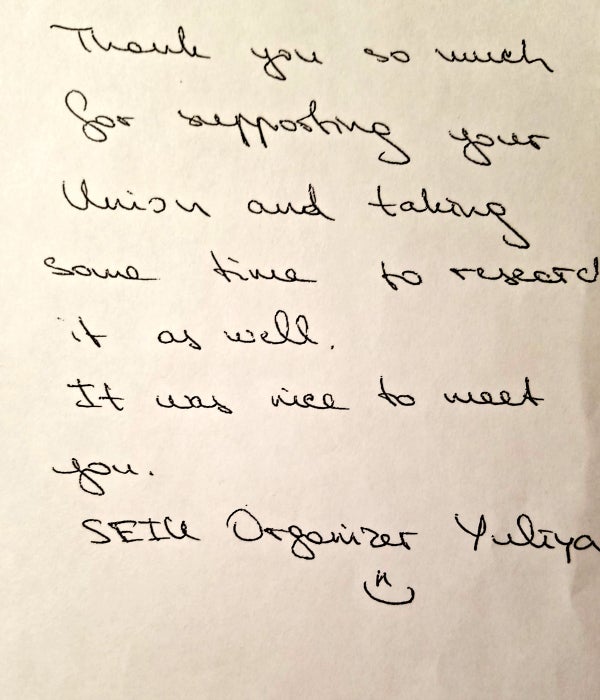 Thank you so much
for supporting your
Union and taking
some time to researc
it as well.
It was nice to meet
you.
SEIU Organizer Yuliya